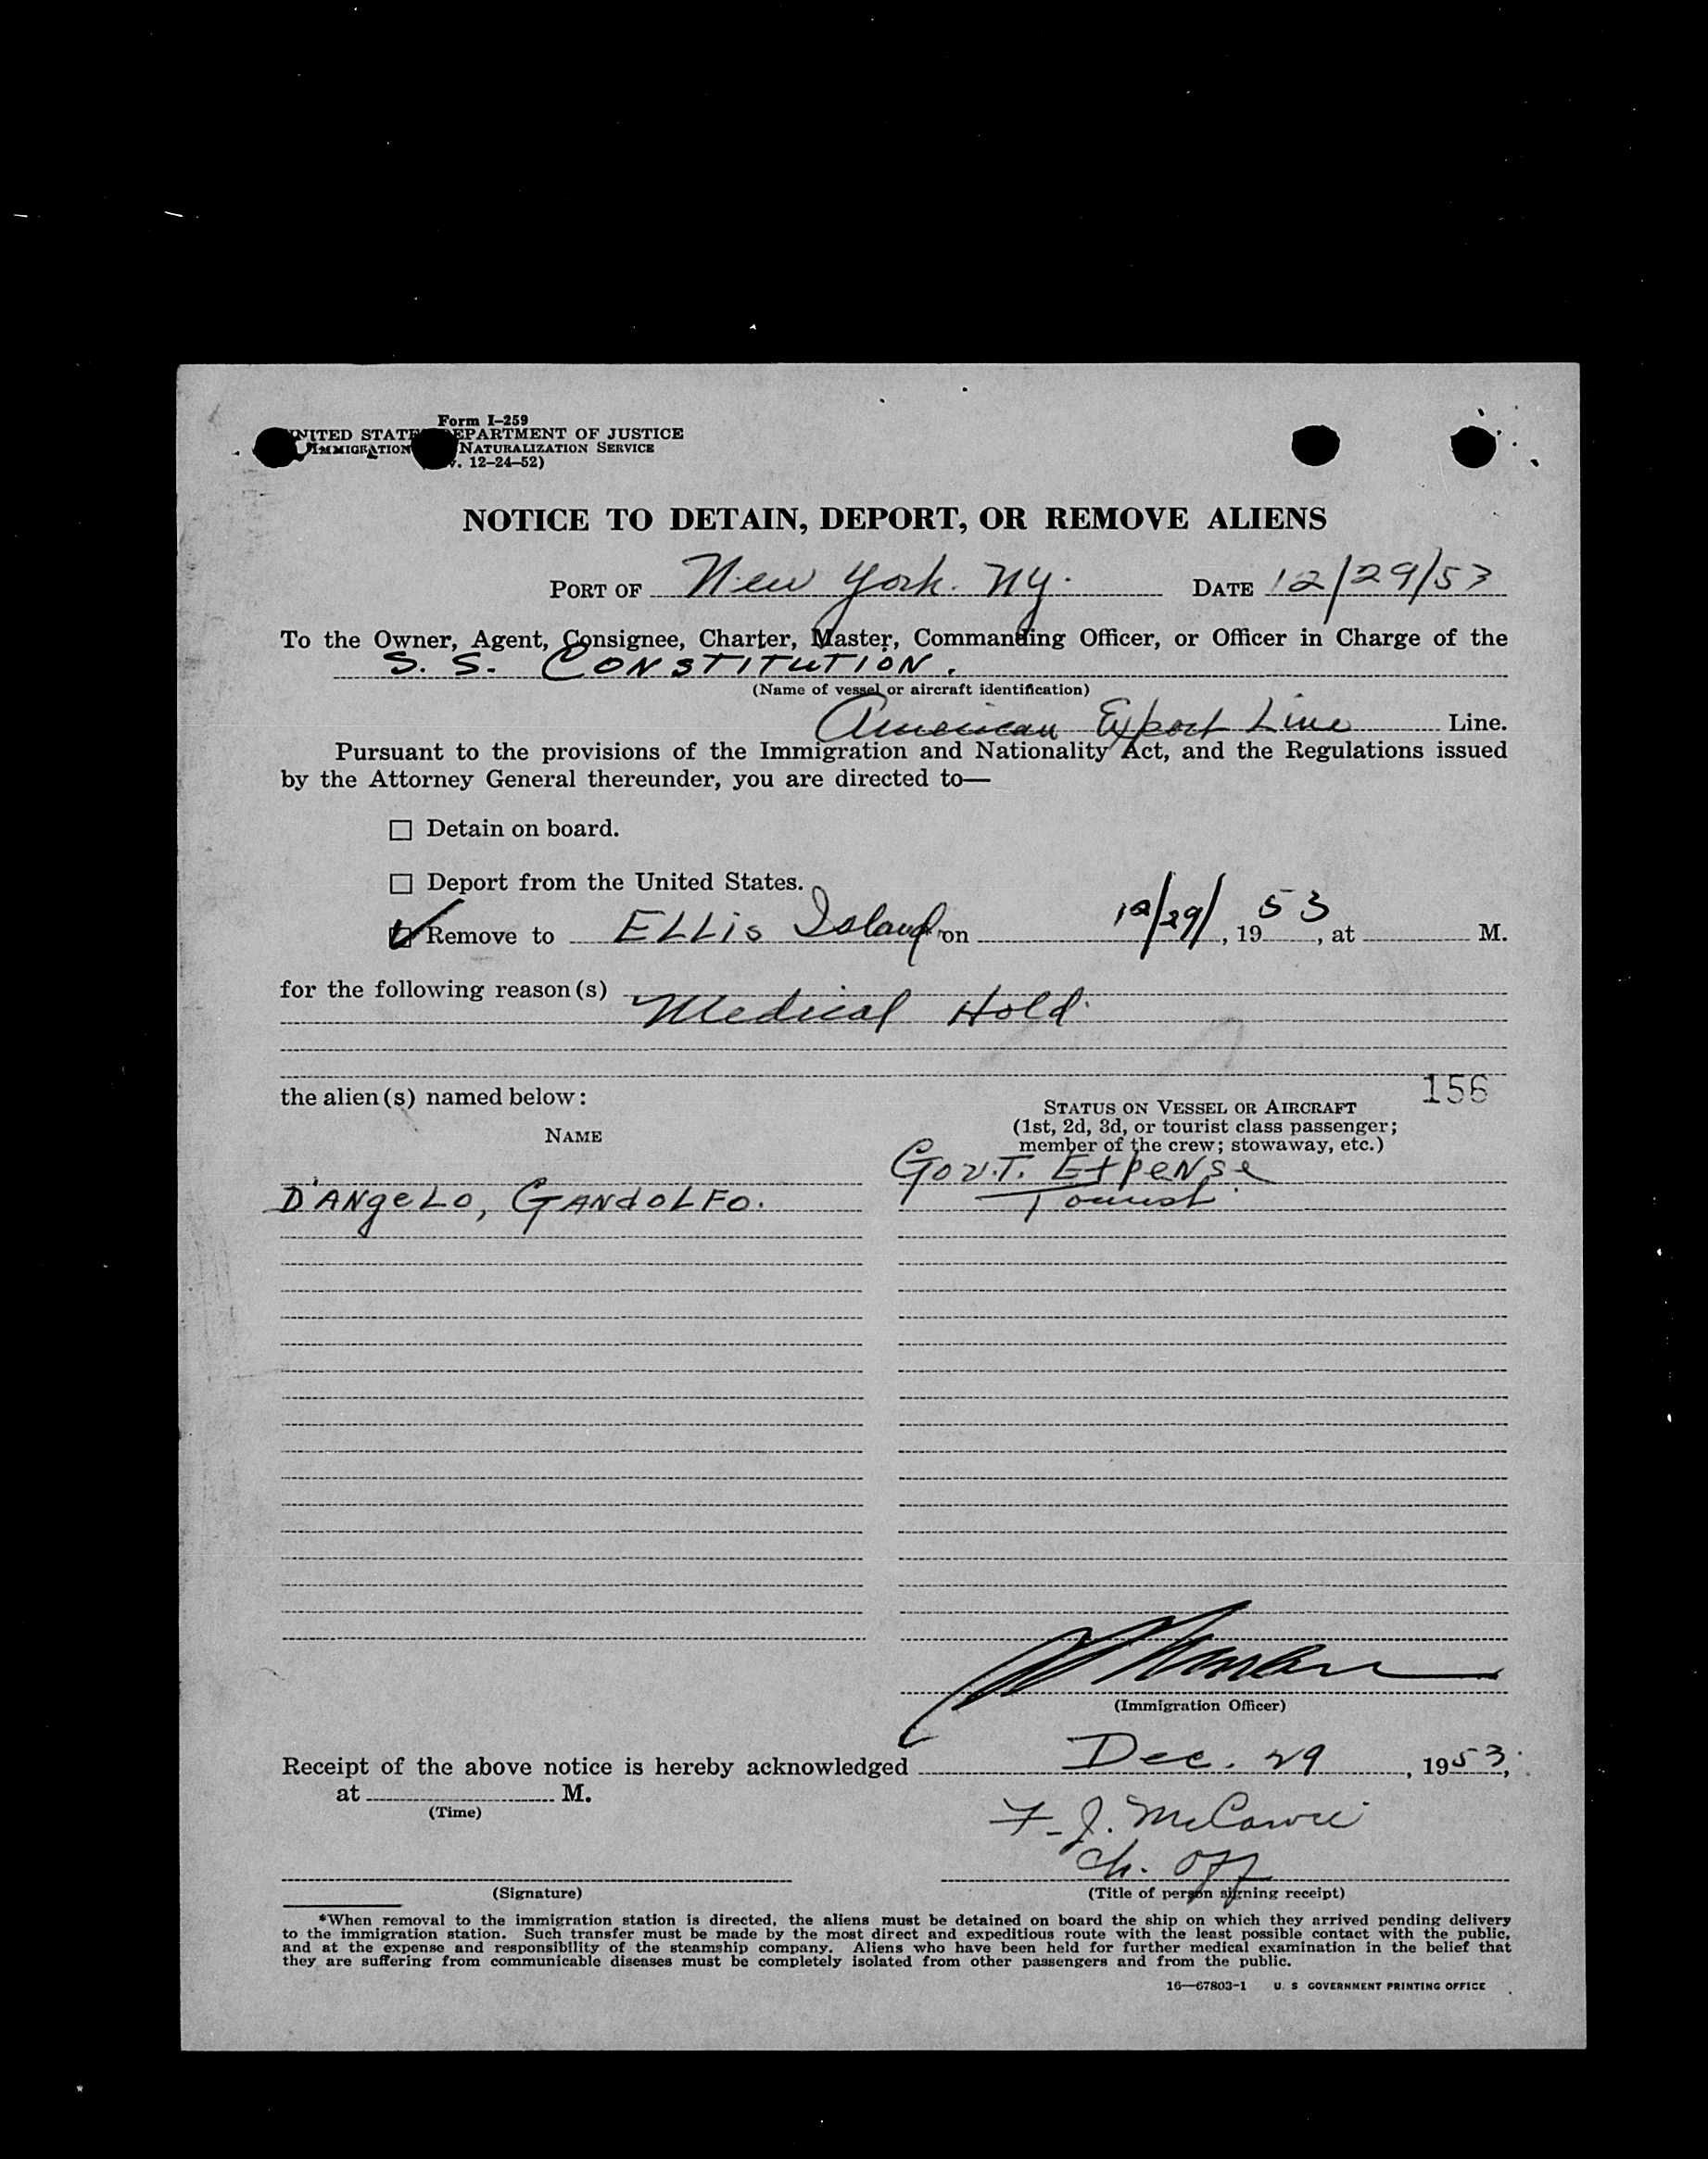 Form I-259
UNITED STATES DEPARTMENT OF JUSTICE
IMMIGRATION NATURALIZATION SERVICE
12-24-52)
NOTICE TO DETAIN, DEPORT, OR REMOVE ALIENS
PORT OF New York. NY. DATE 12/29/53
To the Owner, Agent, Consignee, Charter, Master, Commanding Officer, or Officer in Charge of the
S. S. CONSTITUTION.
(Name of vessel or aircraft identification)
American Export Line Line.
Pursuant to the provisions of the Immigration and Nationality Act, and the Regulations issued
by the Attorney General thereunder, you are directed to—
Detain on board.
Deport from the United States.
Remove to ELLis Island on 12/29/, 1953, at M.
for the following reason(s)
Medical Hold.
156
the alien(s) named below:
STATUS ON VESSEL OR AIRCRAFT
(1st, 2d, 3d, or tourist class passenger;
member of the crew; stowaway, etc.)
NAME
Gov.T. ExpeNse
D'ANgeLo, GANdoLFo. Tourist
(Immigration Officer)
Receipt of the above notice is hereby acknowledged Dec. 29, 1953,
at M.
(Time)
F. J.
Ch. Off
(Signature) (Title of person signing receipt)
*When removal to the immigration station is directed, the aliens must be detained on board the ship on which they arrived pending delivery
to the immigration station. Such transfer must be made by the most direct and expeditious route with the least possible contact with the public,
and at the expense and responsibility of the steamship company. Aliens who have been held for further medical examination in the belief that
they are suffering from communicable diseases must be completely isolated from other passengers and from the public.
16—67803-1 U. S GOVERNMENT PRINTING OFFICE